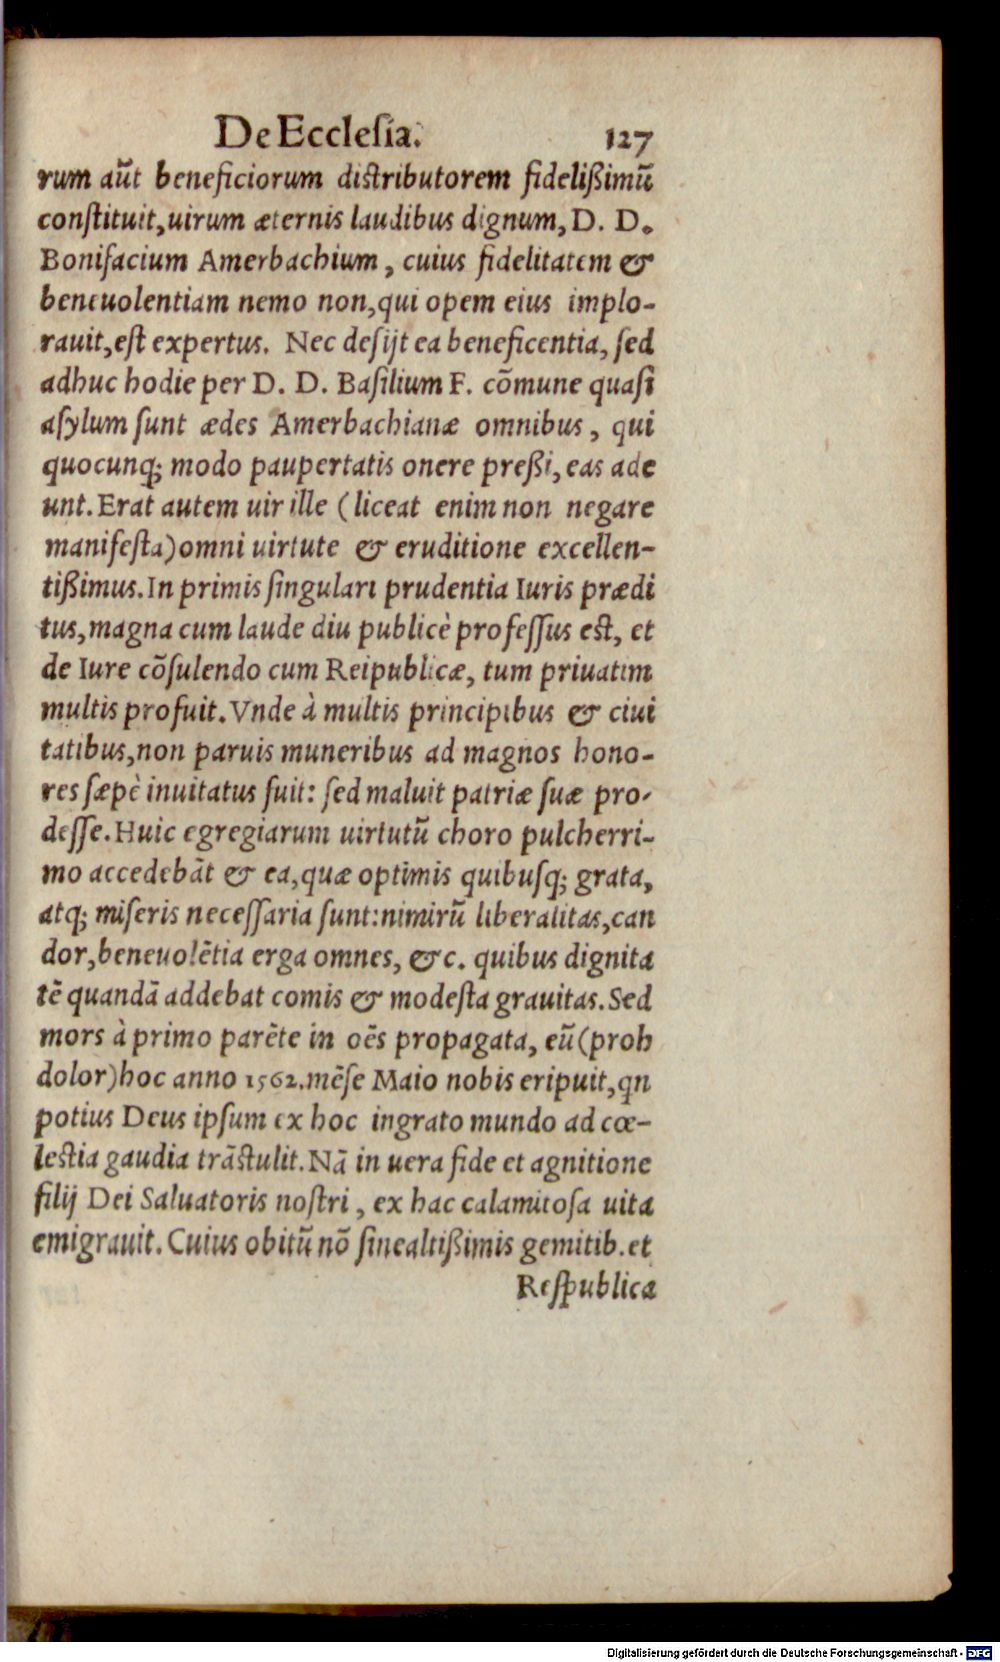 De Ecclesia. 127
rum aūt beneficiorum distributorem fidelißimū
constituit, uirum æternis laudibus dignum, D. D.
Bonifacium Amerbachium, cuius fidelitatem &
beneuolentiam nemo non, qui opem eius implo-
rauit, est expertus. Nec desijt ea beneficentia, sed
adhuc hodie per D. D. Basilium F. cōmune quasi
asylum sunt ædes Amerbachianæ omnibus, qui
quocunq; modo paupertatis onere preßi, eas ade
unt. Erat autem uir ille (liceat enim non negare
manifesta) omni uirtute & eruditione excellen-
tißimus. In primis singulari prudentia Iuris prædi
tus, magna cum laude diu publicè professus est, et
de Iure cōsulendo cum Reipublicæ, tum priuatim
multis profuit. Vnde à multis principibus & ciui
tatibus, non paruis muneribus ad magnos hono-
res sæpè inuitatus fuit: sed maluit patriæ suæ pro-
desse. Huic egregiarum uirtutū choro pulcherri-
mo accedebāt & ea, quæ optimis quibusq; grata,
atq; miseris necessaria sunt: nimirū liberalitas, can
dor, beneuolētia erga omnes, &c. quibus dignita
tē quandā addebat comis & modesta grauitas. Sed
mors à primo parēte in oēs propagata, eū (proh
dolor) hoc anno 1562. mēse Maio nobis eripuit, qn
potius Deus ipsum ex hoc ingrato mundo ad cœ-
lestia gaudia trāstulit. Nā in uera fide et agnitione
filij Dei Saluatoris nostri, ex hac calamitosa uita
emigrauit. Cuius obitū nō sine altißimis gemitib. et
Respublica
Digitalisierung gefördert durch die Deutsche Forschungsgemeinschaft - DFG